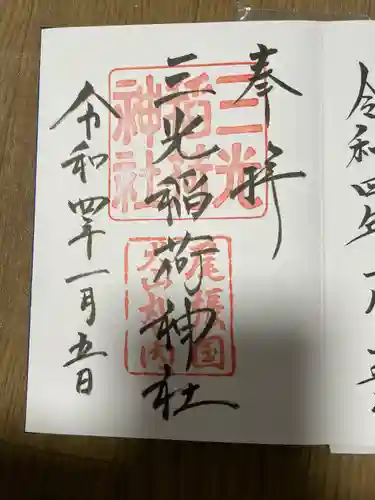 奉拝
三光稲荷神社
令和四年一月五日
三光
稲荷
神社
尾張国
犬山丸内
令和四年一月